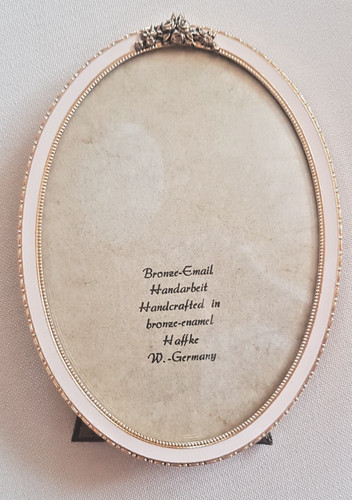 Bronze-Email
Handarbeit
Handcrafted in
bronze-enamel
Haffke
W.-Germany